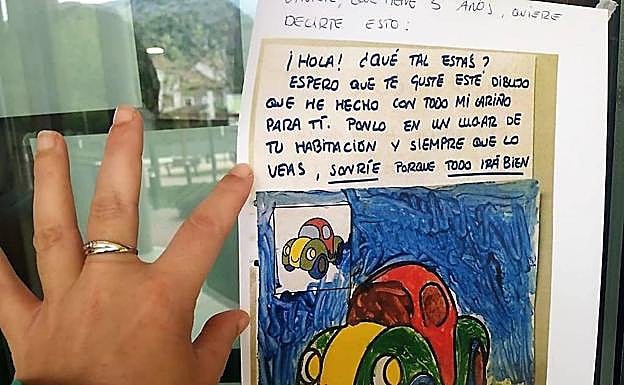 QUE TIENE 5 AÑOS, QUIERE
DECIRTE ESTO:
¡HOLA! ¿QUÉ TAL ESTÁS?
ESPERO QUE TE GUSTE ESTÉ DIBUJO
QUE HE HECHO CON TODO MI CARIÑO
PARA TÍ. PONLO EN UN LUGAR DE
TU HABITACIÓN Y SIEMPRE QUE LO
VEAS, SONRÍE PORQUE TODO IRÁ BIEN